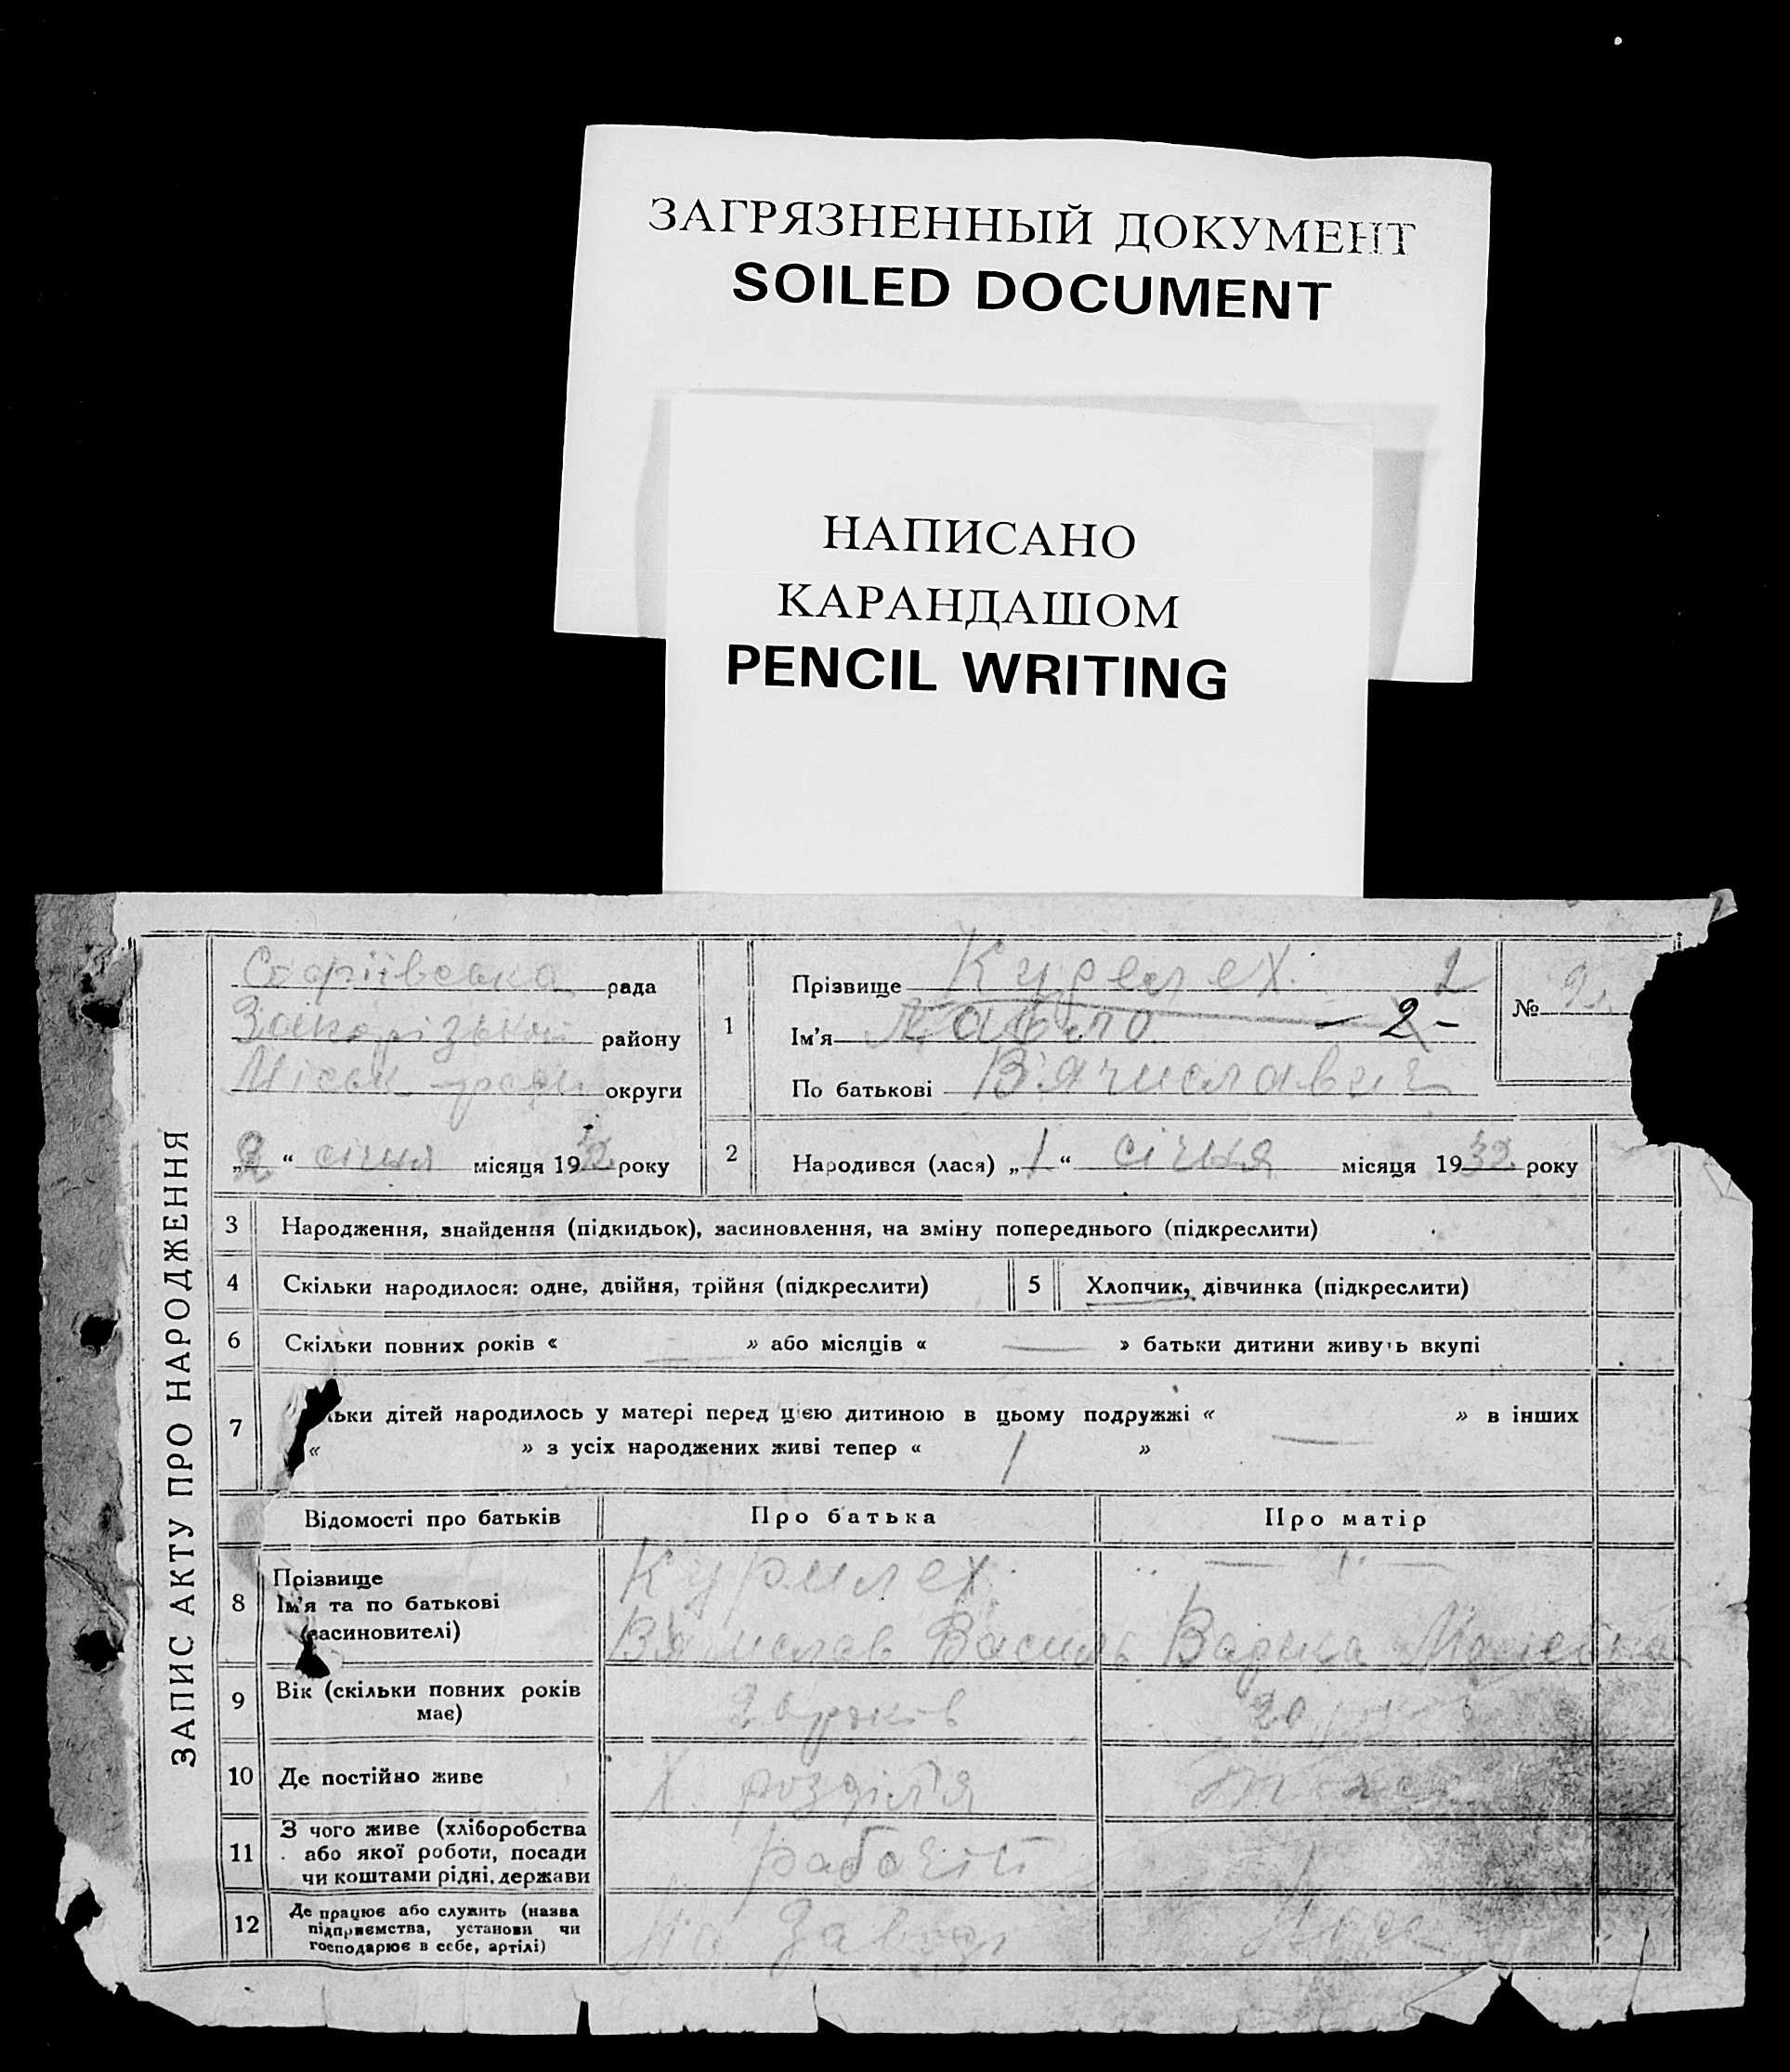 ЗАГРЯЗНЕННЫЙ ДОКУМЕНТ
SOILED DOCUMENT
НАПИСАНО
КАРАНДАШОМ
PENCIL WRITING
ЗАПИС АКТУ ПРО НАРОДЖЕННЯ
Софіївська рада
району
округи
„2“ січня місяця 1932 року
1
Прізвище 2
Ім'я Павло - 2 -
По батькові Вячиславович
№
2 Народився (лася) „1“ січня місяця 1932 року
3 Народження, знайдення (підкидьок), засиновлення, на зміну попереднього (підкреслити)
4 Скільки народилося: одне, двійня, трійня (підкреслити) 5 Хлопчик, дівчинка (підкреслити)
6 Скільки повних років « — » або місяців « — » батьки дитини живуть вкупі
7 льки дітей народилось у матері перед цією дитиною в цьому подружжі « » в інших
« » з усіх народжених живі тепер « 1 » —
Відомості про батьків Про батька Про матір
8 Прізвище
Ім'я та по батькові
(засиновителі)
Курилех
Вячислав Василь
9 Вік (скільки повних років
має)
років 20
10 Де постійно живе
Х. розділля
11 З чого живе (хліборобства
або якої роботи, посади
чи коштами рідні, держави
рабочій
12 Де працює або служить (назва
підприємства, установи чи
господарює в себе, артілі)
На